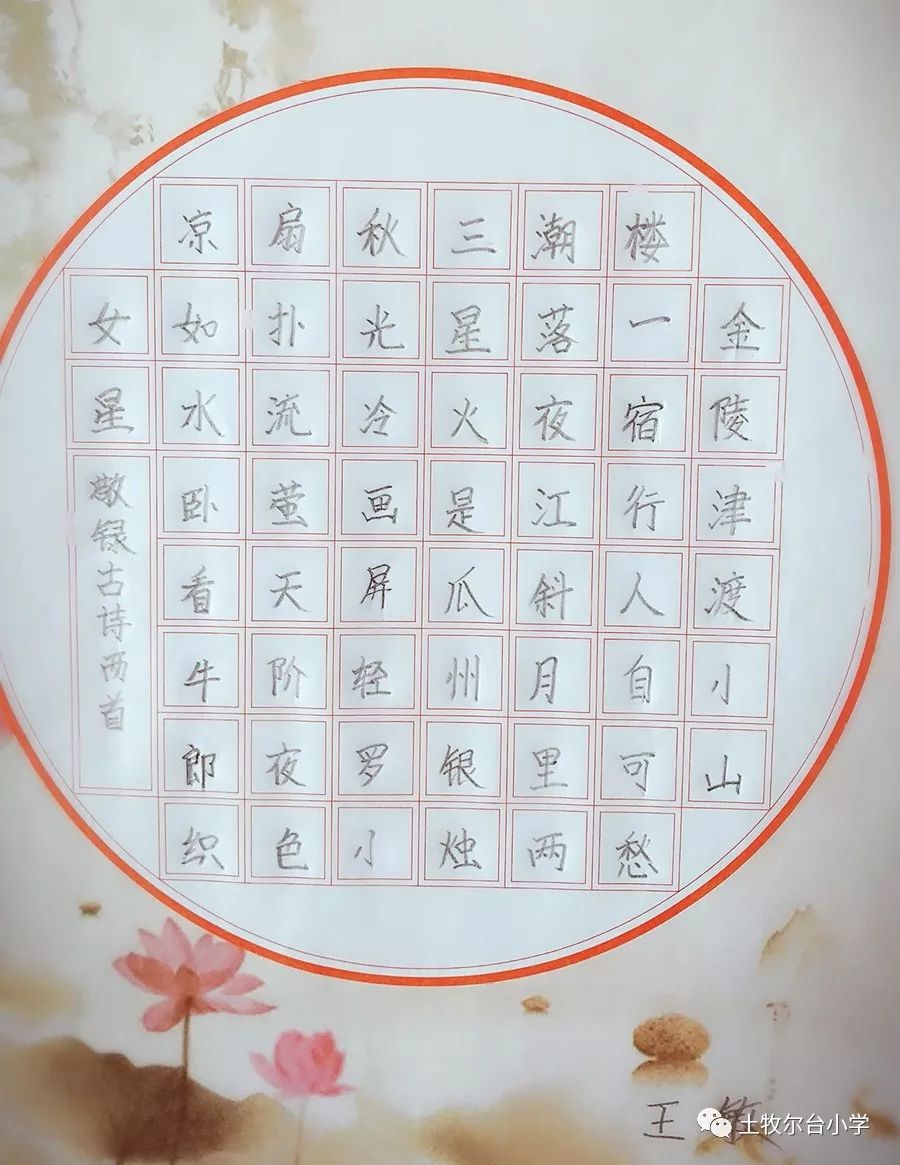 金陵津渡小山
楼一宿行人自可愁
潮落夜江斜月里两
三星火是瓜州银烛
秋光冷画屏轻罗小
扇扑流萤天阶夜色
凉如水卧看牛郎织
女星
敬录古诗两首
王敏
土牧尔台小学